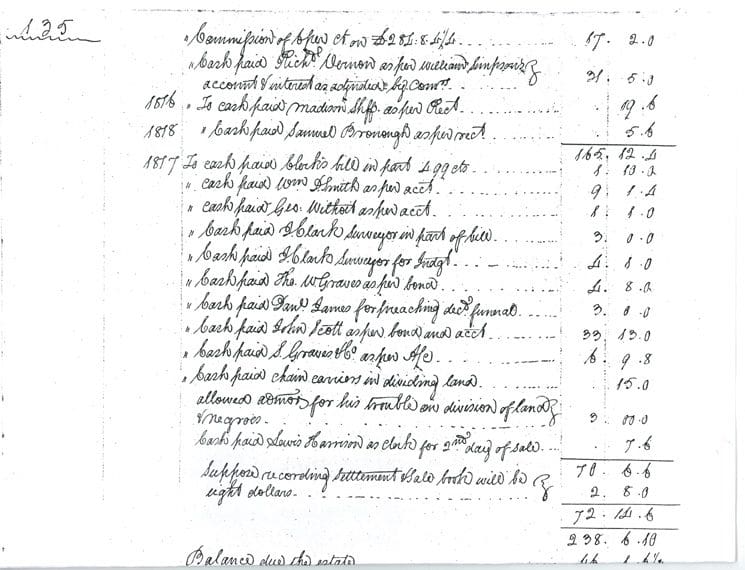 135
" Commission of 6 per ct on £281.8.4¼ 17. 2.0
" Cash paid Richd Vernon as per William Simpson's
account & interest as adjudied by Comrs. 31. 5.0
1816 " To cash paid Madison Shff. as per Rect. . 19.6
1818 " Cash paid Samuel Bronough as per rect . 5.6
165. 12.4
1817 To cash paid Clerk's bill in part 499 cts 1. 10.0
" cash paid Wm A Smith as per acct. 9 1.4
" cash paid Geo: Withoit as per acct. 1 1.0
" Cash paid J. Clark Surveyor in part of bill 3. 0.0
" Cash paid J. Clark Surveyor for Judgt. 4. 1.0
" Cash paid Tho. W Graves as per bond 4. 8.0
" Cash paid Danl. James for preaching decd funeral. 3. 0.0
" Cash paid John Scott as per bond and acct 33 13.0
" Cash paid S. Graves & Co as per A/c 6. 9.8
" Cash paid chain carriers in dividing land . 15.0
allowed admor for his trouble on division of land
& negroes. 3. 00.0
Cash paid Lewis Harrison as clerk for 2nd day of sale . 7.6
70. 6.6
Suppose recording settlement & sale book will be
eight dollars. 2. 8.0
72. 14.6
238. 6.10
Balance due the estate